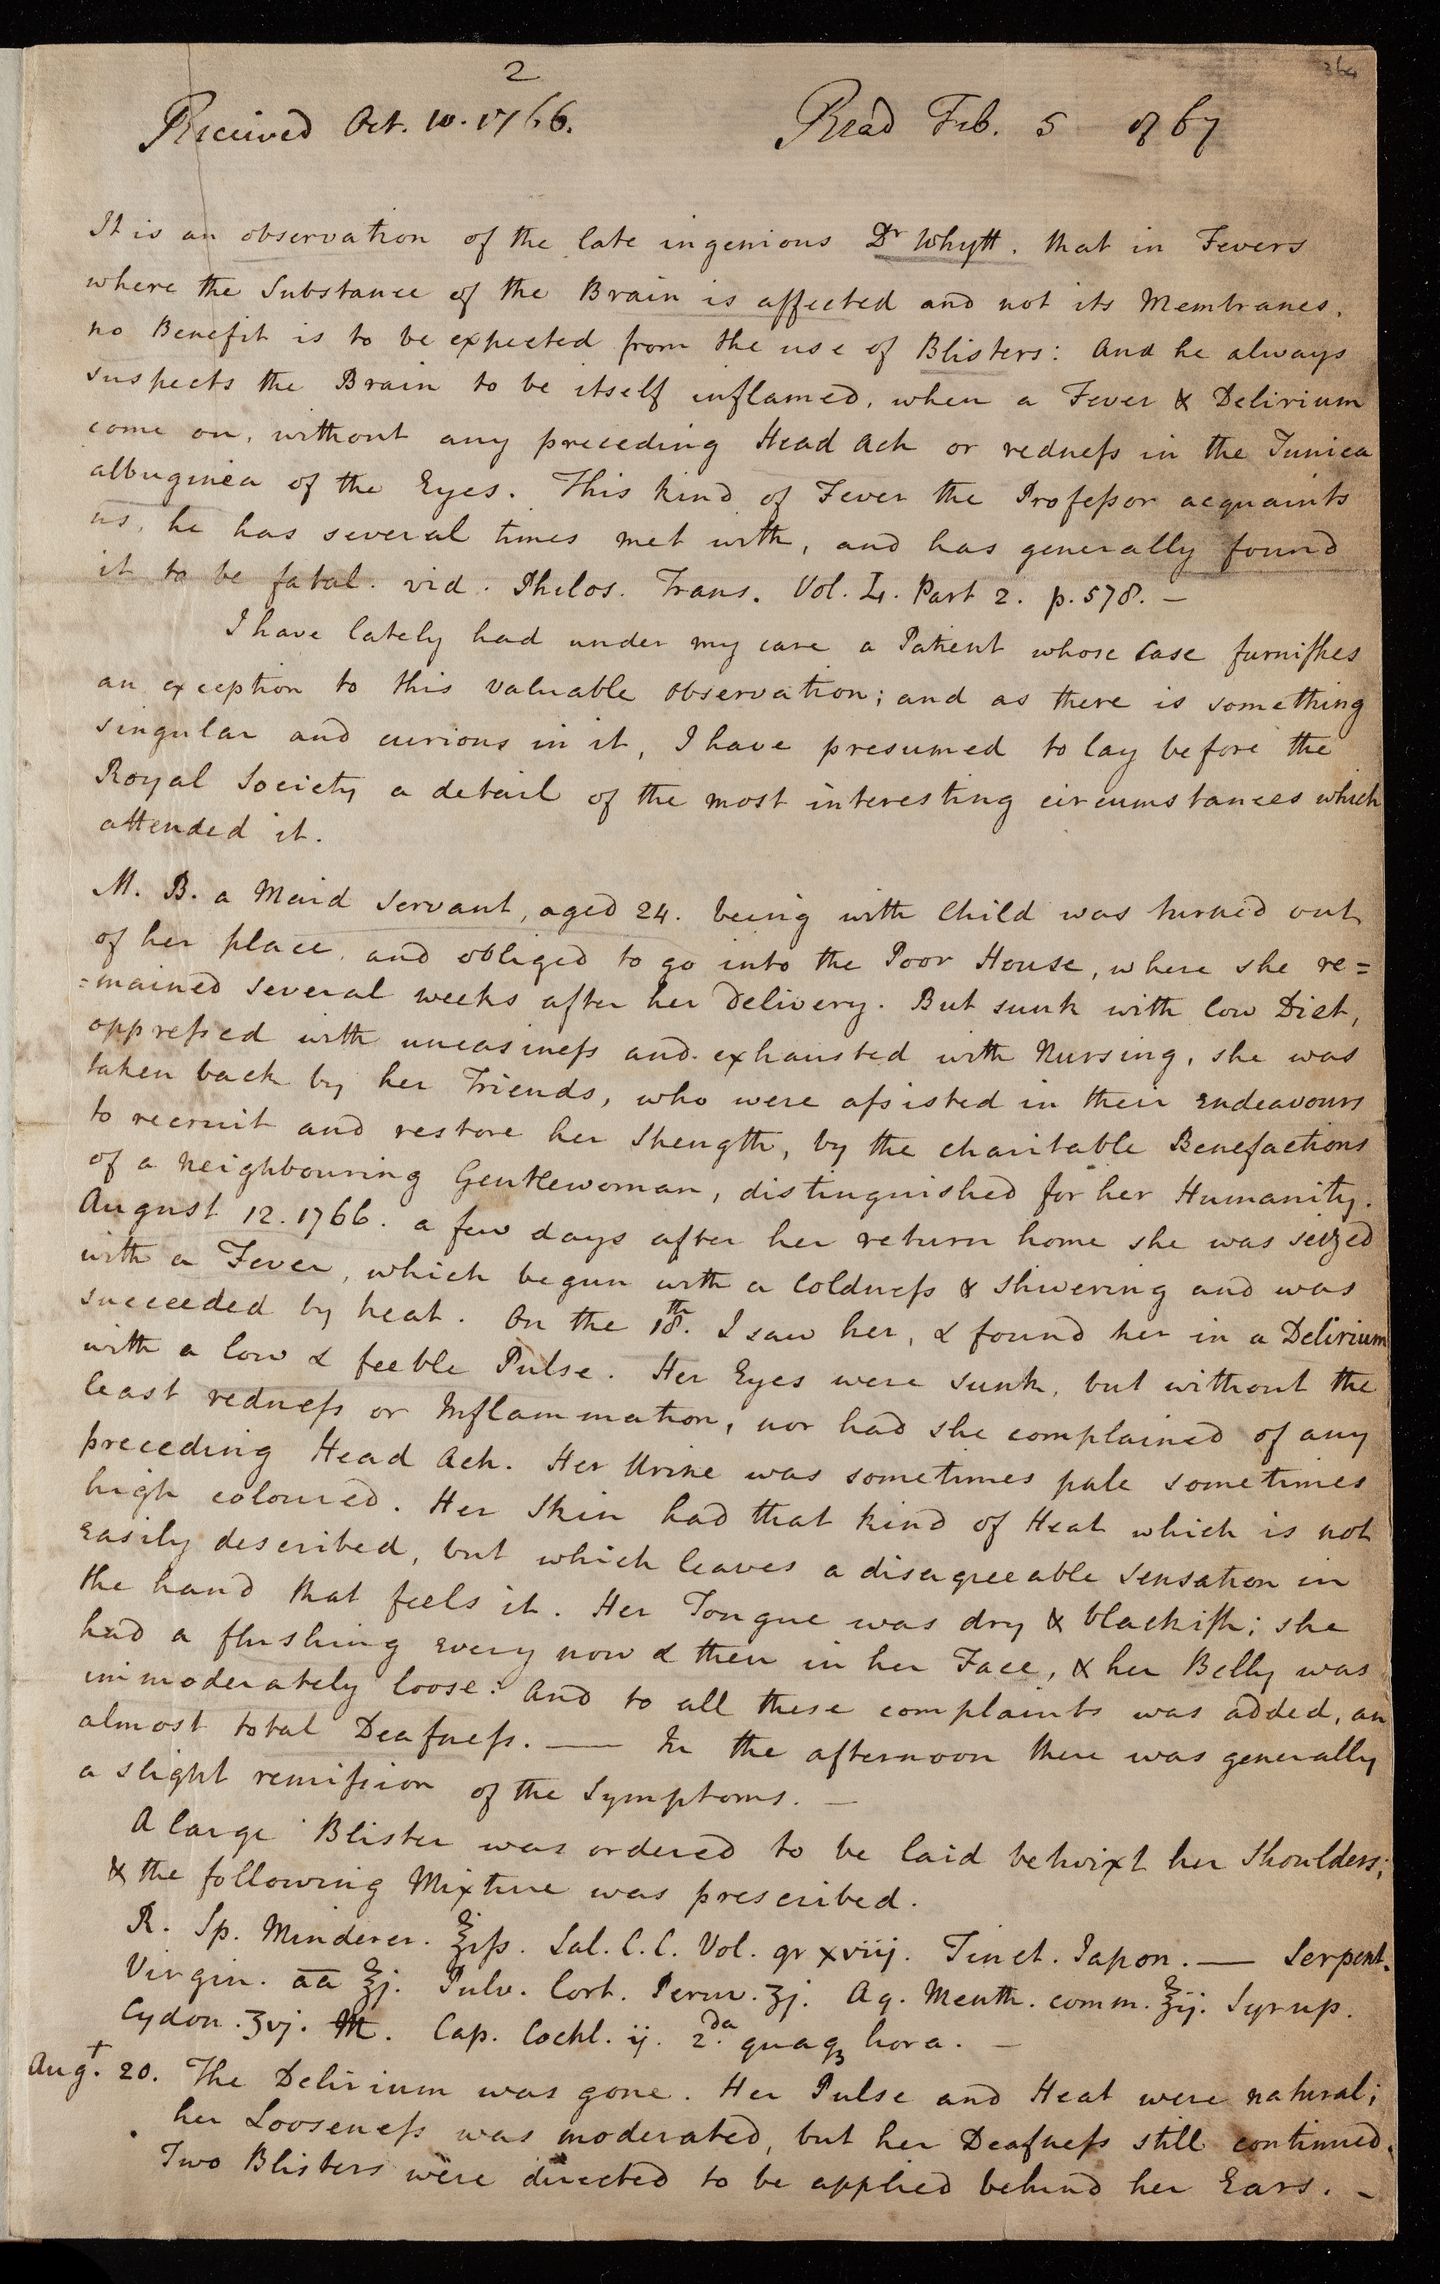 2
364
Received Oct. 10. 1766. Read Feb. 5 1767
It is an observation of the late ingenious Dr Whytt. that in Fevers
where the Substance of the Brain is affected and not its Membranes,
no Benefit is to be expected from the use of Blisters: And he always
suspects the Brain to be itself inflamed, when a Fever & Delirium
come on, without any preceding Head Ach or redness in the Tunica
albuginea of the Eyes. This kind of Fever the Professor acquaints
us, he has several times met with, and has generally found
it to be fatal. vid. Philos. Trans. Vol. L. Part 2. p. 578. —
I have lately had under my care a Patient whose Case furnishes
an exception to this valuable observation; and as there is something
singular and curious in it, I have presumed to lay before the
Royal Society a detail of the most interesting circumstances which
attended it.
M. B. a Maid Servant, aged 24. being with Child was turned out
of her place, and obliged to go into the Poor House, where she re=
=mained several weeks after her Delivery. But sunk with low Diet,
oppressed with uneasiness and exhausted with Nursing, she was
taken back by her Friends, who were assisted in their Endeavours
to recruit and restore her Strength, by the charitable Benefactions
of a neighbouring Gentlewoman, distinguished for her Humanity.
August 12. 1766. a few days after her return home she was seized
with a Fever, which begun with a Coldness & Shivering and was
succeeded by heat. On the 18th. I saw her, & found her in a Delirium
with a low & feeble Pulse. Her Eyes were sunk, but without the
least redness or Inflammation, nor had she complained of any
preceding Head Ach. Her Urine was sometimes pale sometimes
high coloured. Her Skin had that kind of Heat which is not
easily described, but which leaves a disagreeable Sensation in
the hand that feels it. Her Tongue was dry & blackish; she
had a flushing every now & then in her Face, & her Belly was
immoderately loose: And to all these complaints was added, an
almost total Deafness. — In the afternoon there was generally
a slight remission of the Symptoms. —
A large Blister was ordered to be laid betwixt her Shoulders;
& the following Mixture was prescribed.
R. Sp. Minderer. ℥iss. Sal. C. C. Vol. gr xviij. Tinct. Japon. — Serpent.
Virgin. aa ℥j. Pulv. Cort. Peruv. ʒj. Aq. Menth. comm. ℥ij. Syrup.
Cydon. ʒvj. M. Cap. Cochl. ij. 2da. quaq hora. —
Augt. 20. The Delirium was gone. Her Pulse and Heat were natural;
her Looseness was moderated, but her Deafness still continued.
Two Blisters were directed to be applied behind her Ears. —